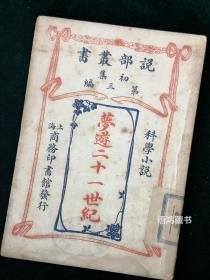 説部叢書
初集
第三編
科學小説
夢遊二十一世紀
上海商務印書館發行